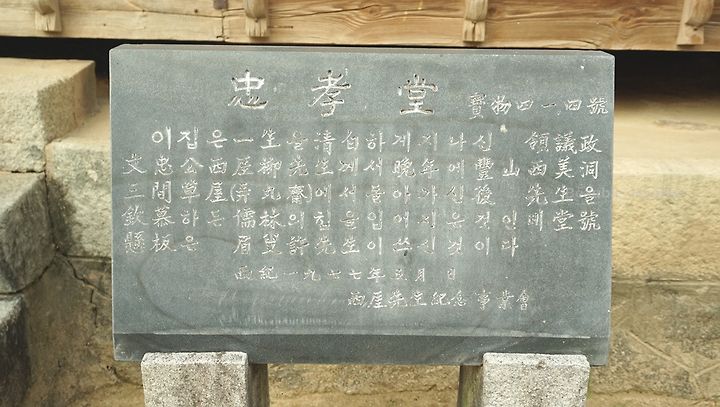 忠孝堂 寶物四一四號
이집은 一生을 清섭하게 지나신 領議政
文忠公西厓柳先生께서 晩年에 豐山 西美洞
三間草屋(弄丸齋)에서 돌아가신後 先生을
欽慕하는 儒林의 힘을입어 지은것인데 堂號
懸板은 眉叟許先生이 쓰신것이다
西紀一九七七年五月 日
西厓先生紀念事業會